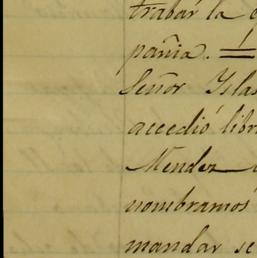 trabar la
pañia. =
Señor Isla
accedió libr
Mendez
nombramos
mandar se